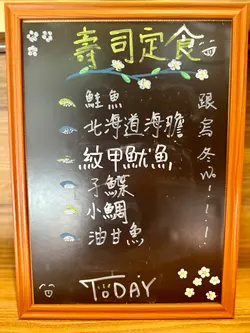 壽司定食
鮭魚
北海道海膽
紋甲魷魚
子鰈
小鯛
油甘魚
跟烏冬
TODAY